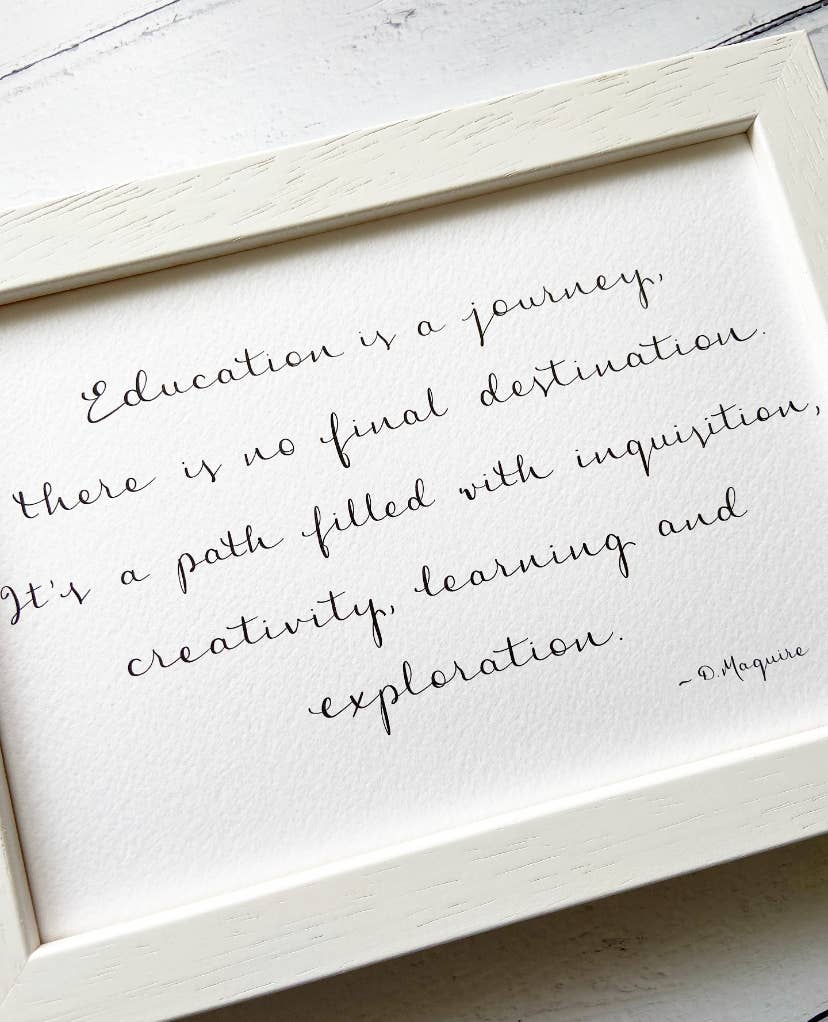 Education is a journey,
there is no final destination.
It's a path filled with inquisition,
creativity, learning and
exploration.
~ D. Maguire